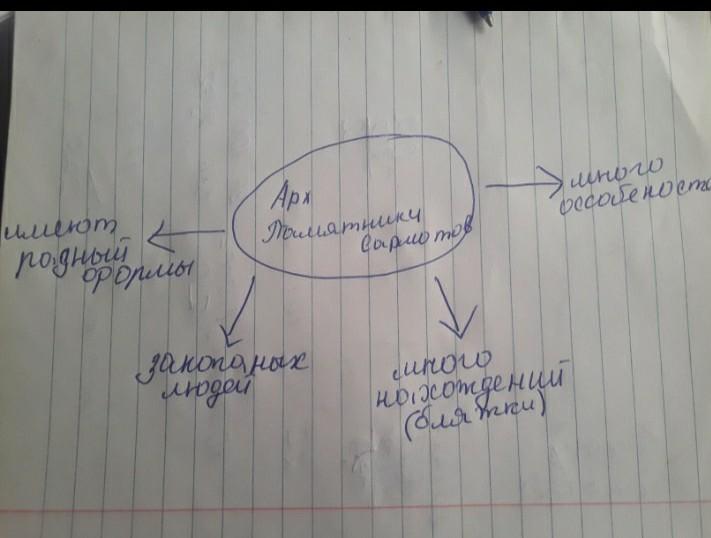 Арх
Памятники
сармотов
много
оссобеност
имеют
разный
формы
закопаных
людей
много
нахождений
(бляжки)